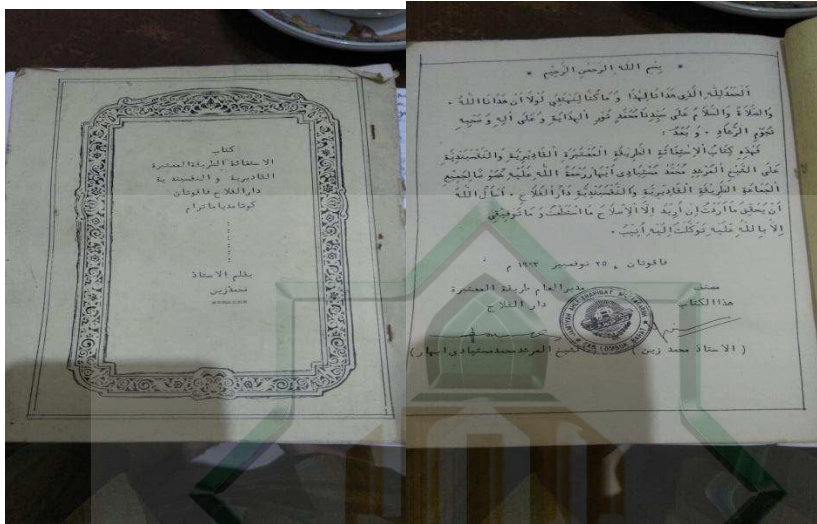 كتاب
الاستغاثة الطريقة المعتبرة
القادرية و النقسبندية
دار الفلاح فاقوتان
كوتامديا ماترام
بقلم الاستاذ
محمد زين
* بِسْمِ اللهِ الرَّحْمٰنِ الرَّحِيْمِ *
اَلْحَمْدُ لِلّٰهِ الَّذِى هَدَانَا لِهٰذَا وَمَا كُنَّا لِنَهْتَدِيَ لَوْلَا اَنْ هَدَانَا اللهُ .
وَالصَّلَاةُ وَالسَّلَامُ عَلَى سَيِّدِنَا مُحَمَّدٍ نُوْرِ الْهِدَايَةِ وَعَلَى اٰلِهِ وَصَحْبِهِ
نُجُوْمِ الرَّشَادِ . وَبَعْدُ :
فَهٰذِهِ كِتَابُ الْاِسْتِغَاثَةِ الطَّرِيْقَةِ الْمُعْتَبَرَةِ الْقَادِرِيَّةِ وَالنَّقْسَبَنْدِيَّةِ
عَلَى الشَّيْخِ الْمُرْشِدِ مُحَمَّدْ مُسْتِيَادِى اَبْهَارْ رَحِمَهُ اللهُ عَلَيْهِ لِجَمِيْعِ
الْجَمَاعَةِ الطَّرِيْقَةِ الْقَادِرِيَّةِ وَالنَّقْسَبَنْدِيَّةِ دَارُ الْفَلَاحِ . اَسْأَلُ اللهَ
اَنْ اُرِيْدُ اِلَّا الْاِصْلَاحَ مَا اسْتَطَعْتُ وَمَا تَوْفِيْقِى
اِلَّا بِاللهِ عَلَيْهِ تَوَكَّلْتُ اِلَيْهِ اُنِيْبُ .
فاقوتان , ٢٥ نوفمبر ١٩٩٣ م
مصنف مدير العام طريقة المعتبرة
هذا الكتاب دار الفلاح
LOMBOK
( الاستاذ محمد زين ) الشيخ المرشد محمد مستيادى ابهار )